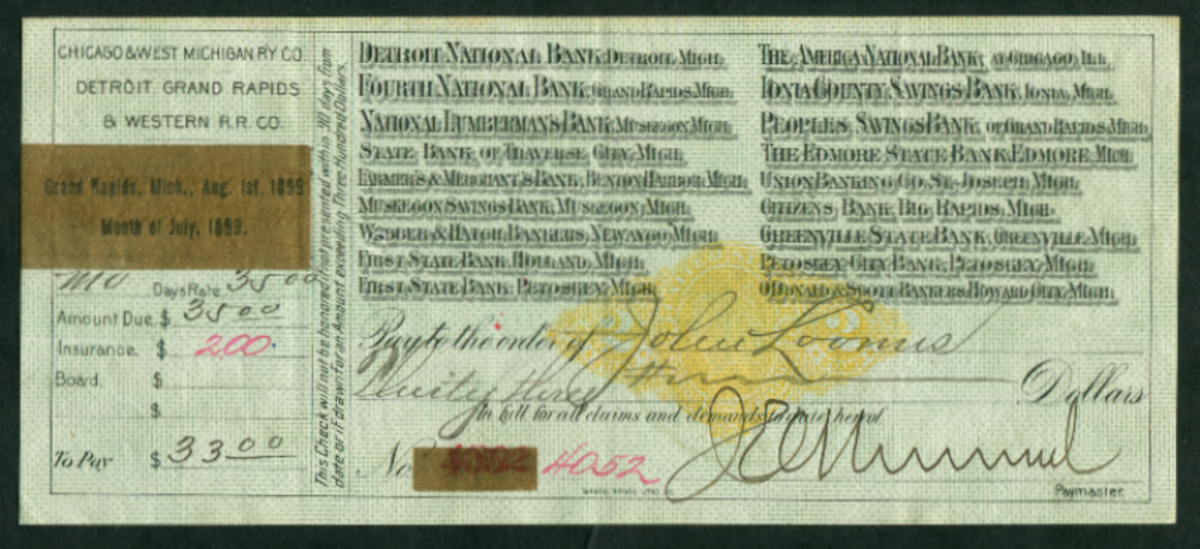 CHICAGO & WEST MICHIGAN R'Y CO.
DETROIT GRAND RAPIDS
& WESTERN R.R. CO.
Grand Rapids, Mich., Aug. 1st. 1899
Month of July, 1899.
Mo Days Rate 35 00
Amount Due. $ 35 00
Insurance. $ 2.00
Board. $
$
To Pay $ 33 00
This Check will not be honored if not presented within 90 days from
date or if drawn for an Amount exceeding Three Hundred Dollars.
DETROIT NATIONAL BANK, DETROIT, MICH.
FOURTH NATIONAL BANK, GRAND RAPIDS, MICH.
NATIONAL LUMBERMAN'S BANK, MUSKEGON, MICH.
STATE BANK, OF TRAVERSE CITY, MICH.
FARMER'S & MERCHANT'S BANK, BENTON HARBOR, MICH.
MUSKEGON SAVINGS BANK, MUSKEGON, MICH.
HATCH, BANKERS, NEWAYGO, MICH.
FIRST STATE BANK, HOLLAND, MICH.
FIRST STATE BANK, PETOSKEY, MICH.
THE AMERICA NATIONAL BANK, AT CHICAGO, ILL.
IONIA COUNTY SAVINGS BANK, IONIA, MICH.
PEOPLES SAVINGS BANK, OF GRAND RAPIDS, MICH.
THE EDMORE STATE BANK, EDMORE, MICH.
UNION BANKING CO. ST. JOSEPH, MICH.
CITIZENS BANK, BIG RAPIDS, MICH.
GREENVILLE STATE BANK, GREENVILLE, MICH.
PETOSKEY CITY BANK, PETOSKEY, MICH.
O'DONALD & SCOTT BANKERS, HOWARD CITY, MICH.
Pay to the order of John Loomis
Thirty three Dollars
In full for all claims and demands to date hereof
No. 4052
Paymaster.